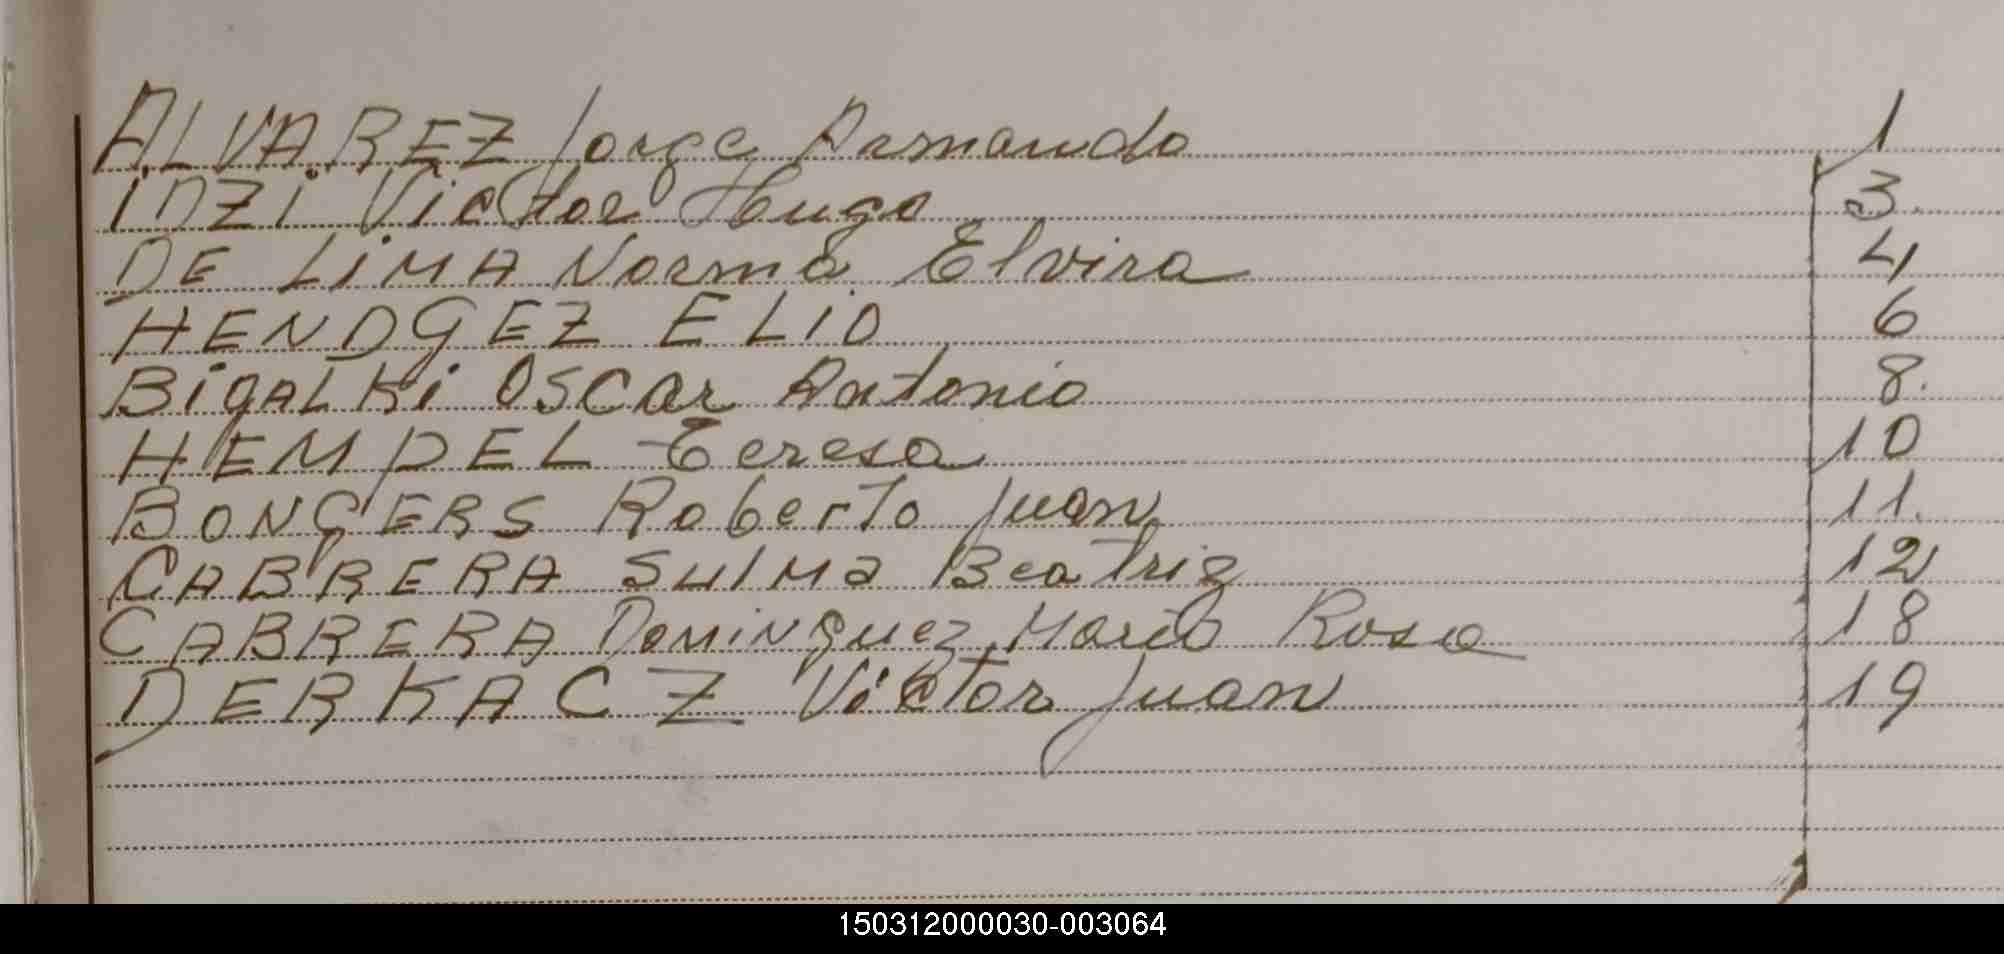 ALVAREZ Jorge Armando 1
INZI Victor Hugo 3.
DE LiMA Norma Elvira 4
HENDGEZ ELIO 6
BigALKi OSCAR Antonio 8.
HEMPEL Teresa 10
BONGERS Roberto Juan 11.
CABRERA Sulma Beatriz 12
CABRERA Dominguez Maria Rosa 18
DERKACZ Victor Juan 19
150312000030-003064